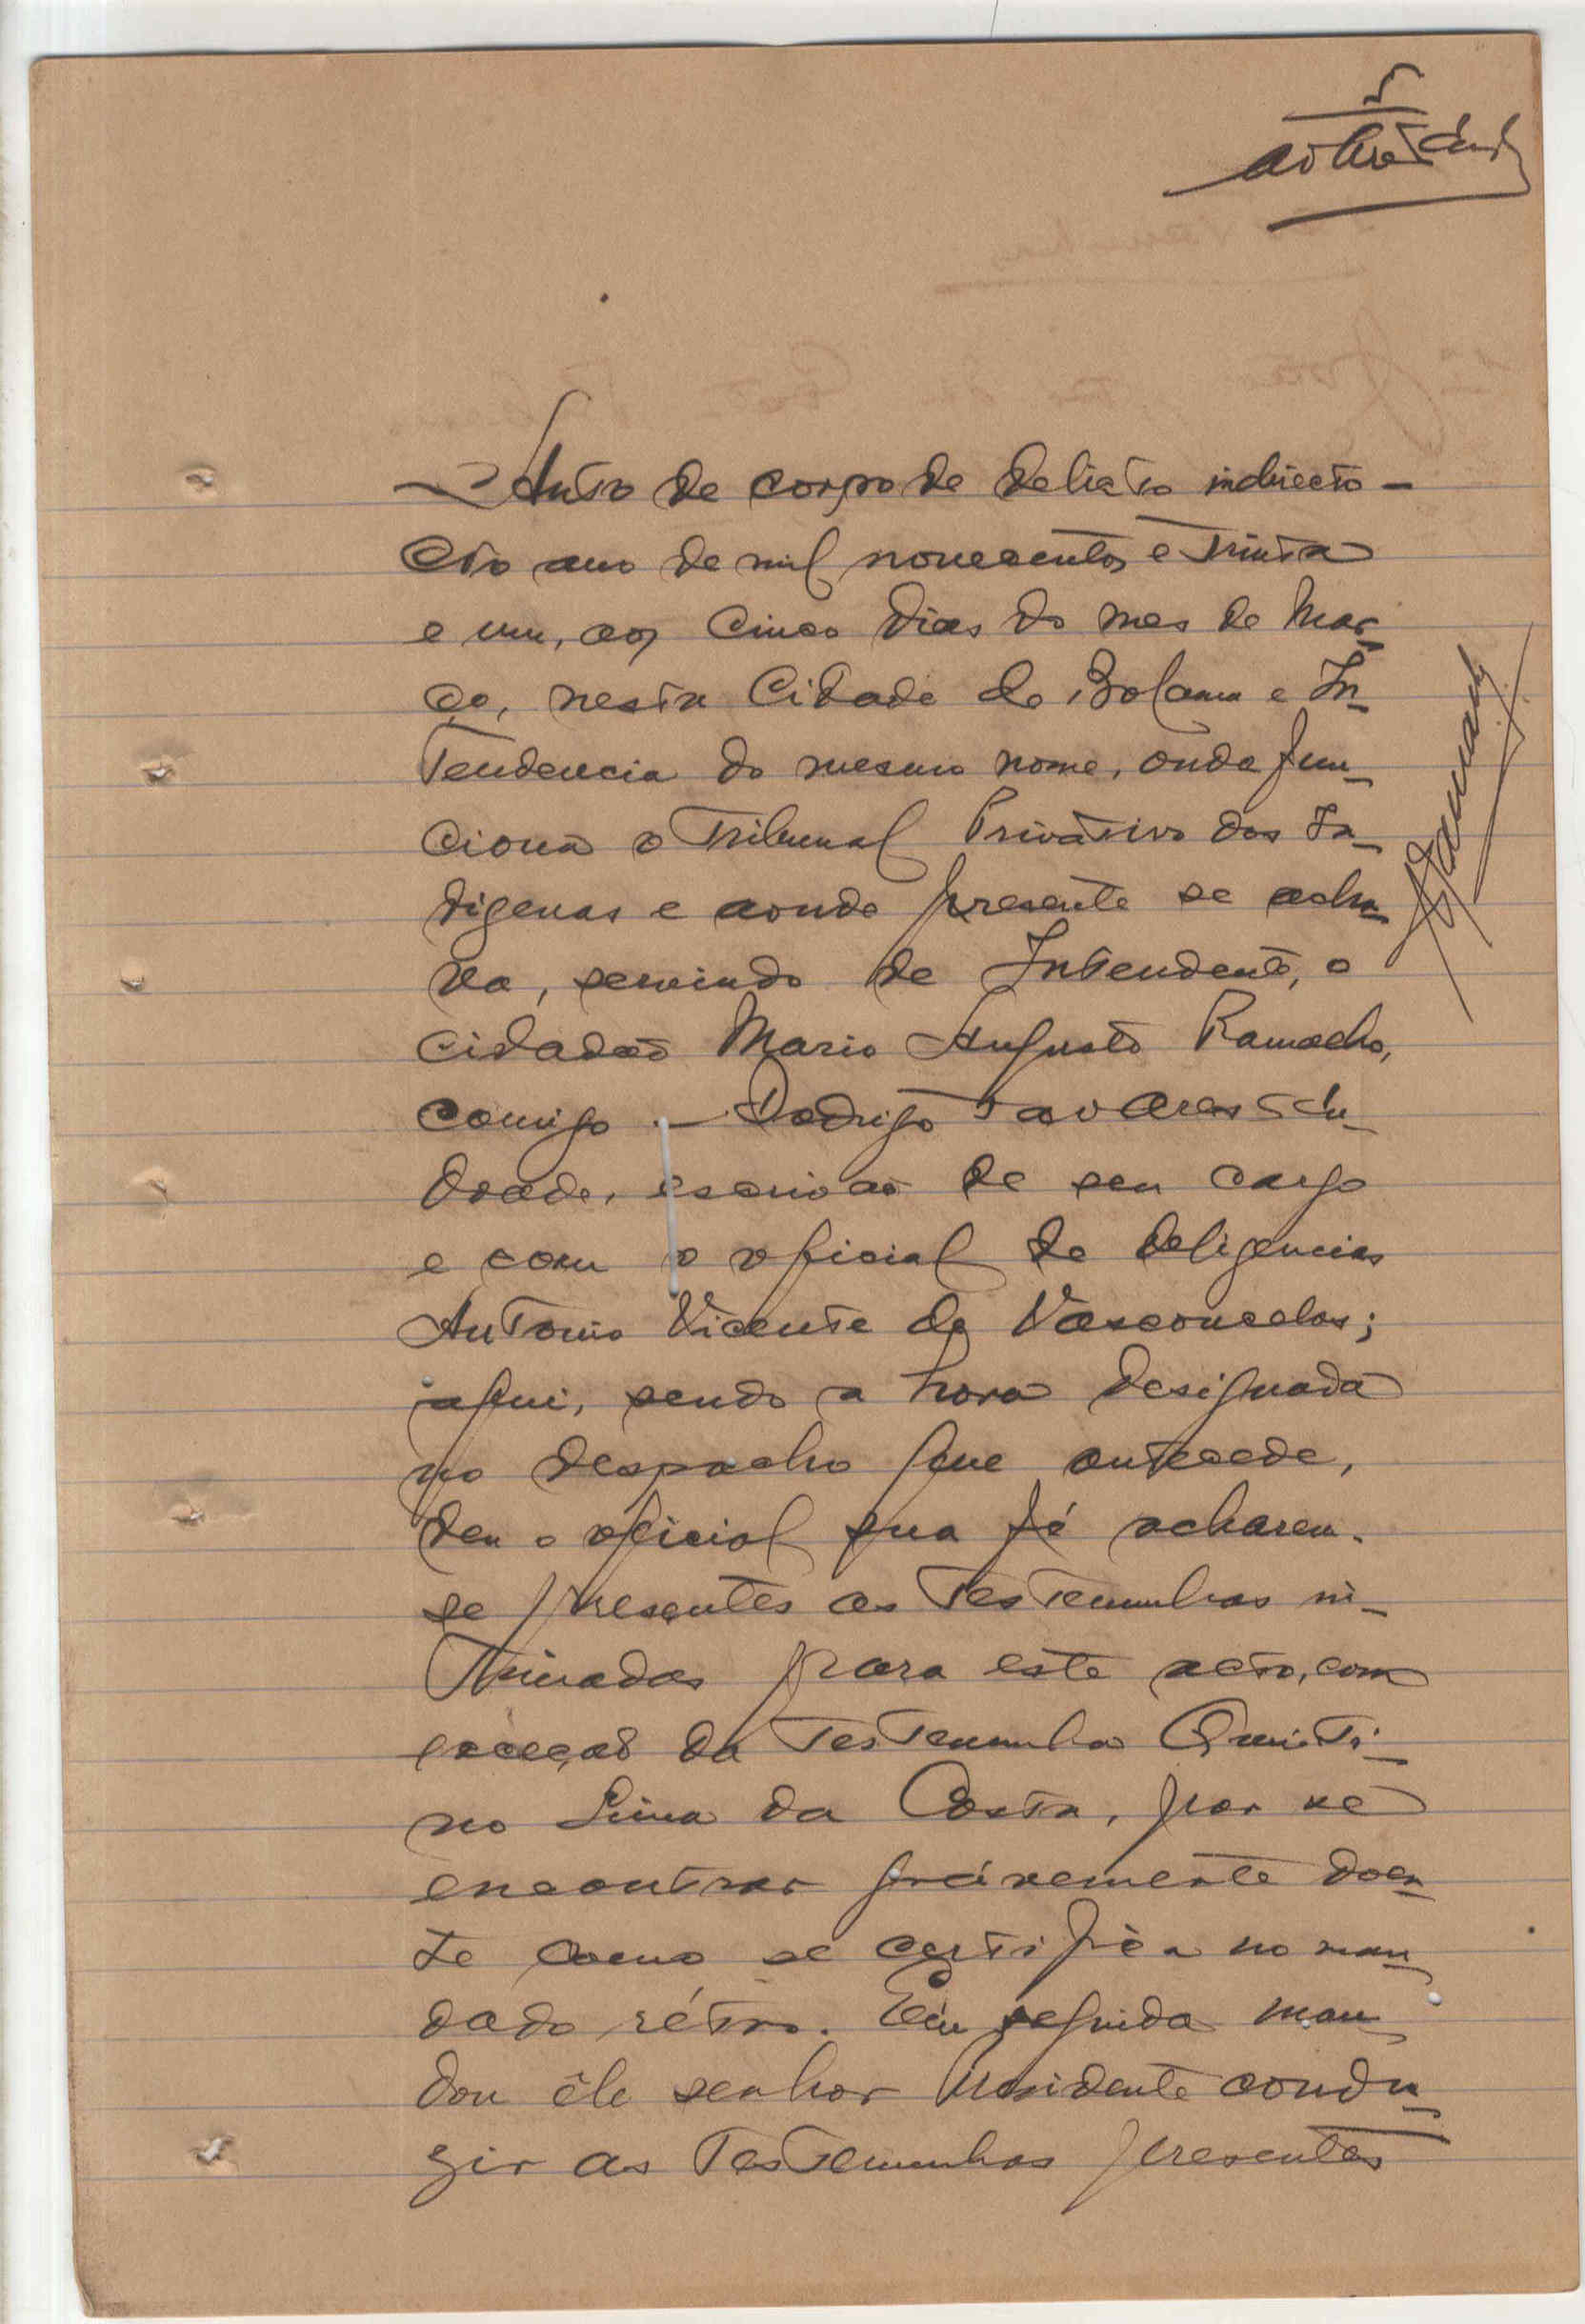 5
Auto de corpo de delicto indirecto -
Ao ano de mil novecentos e trinta
e um, aos cinco dias do mes de Mar-
ço, nesta Cidade de Bolama e In-
tendencia do mesmo nome, onde fun-
ciona o Tribunal Privativo dos In-
digenas e aonde presente se acha-
va, servindo de Intendente, o
cidadão Mario Augusto Ramacho,
comigo - Rodrigo Tavares An-
drade, escrivão de seu cargo
e com o oficial de deligencias
Antonio Vicente de Vasconcelos;
aqui, sendo a hora designada
no despacho que antecede,
deu o oficial sua fé acharem-
se presentes as testemunhas in-
timadas para este acto, com
exceçao da testemunha Quinti-
no Lima da Costa, por se
encontrar grávemente doen-
te como se certifica no man-
dado rétro. Em seguida man-
dou êle senhor Presidente condu-
zir as testemunhas presentes